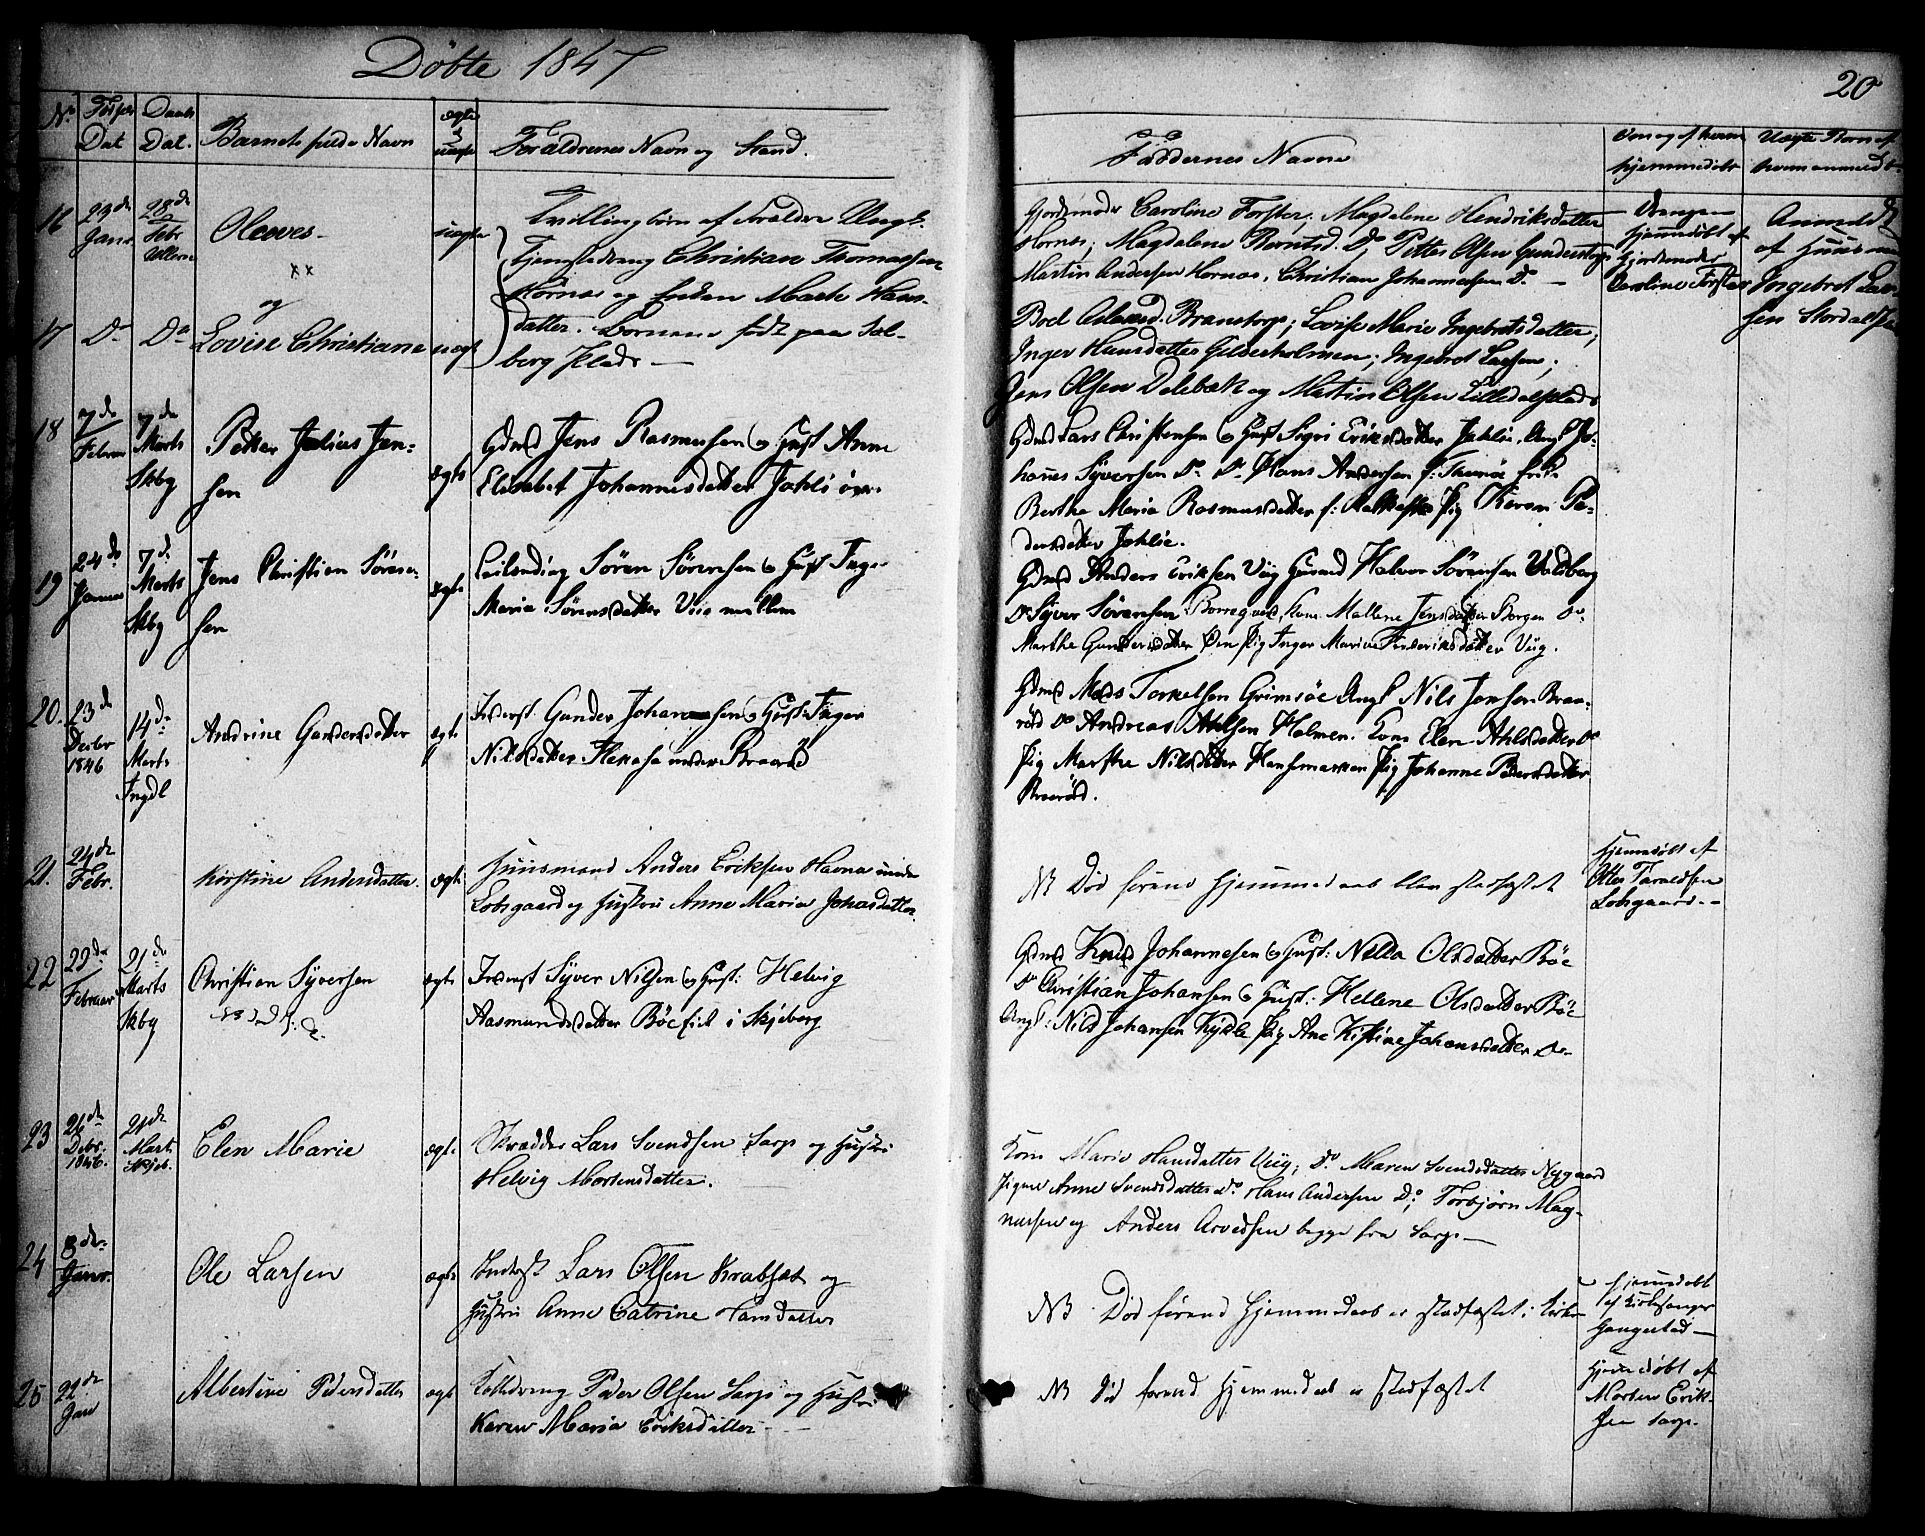 Döbte 1847
20
No
Dat
Daabs Dat.
Barnets fulde Navn
ægte uægte
Forældrenes Navn og Stand.
Faddernes Navne
hjemmedöbt
Uægte Børn af hvem anmeldt
16
23de Janr
28de Febr Ullern
Oleves
xx
og
uægte
Tvillingbörn af Forældre Ungk.
Tjenestedreng Christian Thomassen
Hornæs og Enken Marte Hans-
datter. Børnene født paa Sol-
berg Plads
17
Do
Do
Lovise Christiane
uægt
Gjordemoder Caroline Forster; Magdalene Hendriksdatter
Hornæs; Magdalene Berntsd. Do; Petter Olsen Gunderstorp
Martin Andersen Hornæs, Christian Johannessen Do
Boel Aslaksd. Branstorp; Lovise Marie Ingebretsdatter;
Inger Hansdatter Gilderholmen; Ingebret Larsen;
Jens Olsen Delebæk og Martin Olsen Lilledalsplads
Drengen
hjemmedöbt af
Gjordemoder
Caroline Forster
Anmeldt
af Huusmand
Ingebret Lar-
sen Stordalspl
18
7de Februar
7de Marts Skbg
Petter Julius Jen-
sen
ægte
Gdmd Jens Rasmussen og Hust Anne
Elisabet Johannesdatter Jahli övr.
Gdmd Lars Christensen og Hust Sigri Eriksdatter Jahlie, Ungk Jo-
hanes Syversen Do Do Hans Andersen
Berthe Maria Rasmusdatter Pig Karen Pe-
dersdatter Jahlie.
19
24de Januar
7de Marts Skbg
Jens Christian Sören-
sen
ægte
Leilending Sören Sörensen og Hust Inge-
Maria Sörensdatter Viig mellem
Gdmd Anders Eriksen Viig Gaarmd Halvor Sörensen Valdberg
Do Syver Sörensen Borregaard, Kone Mallene Jensdatter Borgen Do
Marthe Gundersdatter Pig Inger Marie Frederiksdatter Viig.
20.
23de Decbr 1846
14de Marts Ingdl
Andrine Gundersdatter
ægte
Inderst Gunder Johannesen og Hust Inger
Nilsdatter under Braarød
Gdmd Mads Torkelsen Grimsöe Ungk Nils Jensen Braa-
röd Do Andreas Ahlsen Holmen. Kone Elen Ahlsdatter Do
Pig Marthe Nilsdatter Hansmarken Pig Johanne Pedersdatter
Braaröd.
21.
24de Febr.
Kirstine Andersdatter.
ægte
Huusmand Anders Eriksen Havna under
Lobsgaard og Hustru Anne Maria Johansdatter.
NB Död förend Hjemmedaab blev stadfæstet
Hjemmdöbt af
Otter Taraldsen
Lobsgaard.
22
22de Februar
21de Marts Skbg
Christian Syversen
ægte
Inderst Syver Nilsen og Hust: Helvig
Aasmundsdatter Böe fiel i Skjeberg
Gdmd Knud Johannesen og Hust: Nilla Olsdatter Böe
Do Christian Johansen og Hust: Hellene Olsdatter Böe
Ungk: Nils Johansen Pig Ane Kistine Johansdatter Do
23
26de Debr. 1846.
21de Marts Skjeb.
Elen Marie
ægte
Skrædder Lars Svendsen Sarps og Hustru
Helvig Mortensdatter.
Kone Marie Hansdatter Viig; Do Maren Svendsdatter Nygaard
Pigen Anne Svendsdatter Do Hans Andersen Do; Torbjörn Mag-
nussen og Anders Arvedsen begge fra Sarps
24
8de Janr.
Ole Larsen
ægte
Inderst Lars Olsen Krabset og
Hustru Anne Catrine Hansdatter
NB Död förend Hjemmedaab er stadfæstet i Kirke
Hjemmedöbt
af Kirkesanger
Haugestad
25
22de Jan
Albertine Pedersdatter
ægte
Peder Olsen Sarps og Hustru
Karen Maria Eriksdatter
NB Död forend Hjemmedaab er stadfæstet
Hjemmedöbt af
Morten Erik-
sen Sarps.